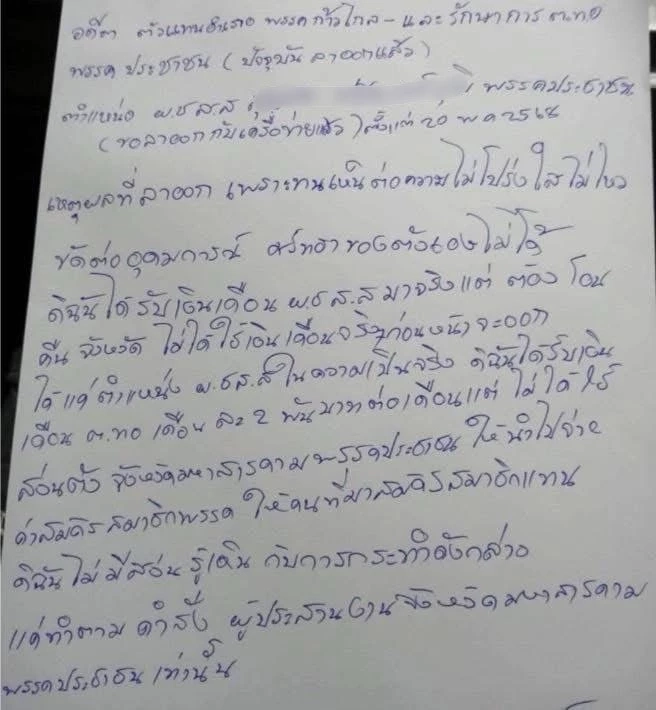 อดีต ตัวแทนอำเภอ พรรคก้าวไกล - และรักษาการ ต.ทอ
พรรคประชาชน (ปัจจุบันลาออกแล้ว)
ตำแหน่ง ผ.ช ส.ส พรรคประชาชน
(ขอลาออกกับเครือข่ายแล้ว) ตั้งแต่ 20 พ.ค 2568
เหตุผลที่ลาออก เพราะทนเห็นต่อความไม่โปร่งใสไม่ไหว
ขัดต่ออุดมการณ์ ศรัทธาของตัวเองไม่ได้
ดิฉันได้รับเงินเดือน ผ.ช ส.ส มาจริงแต่ ต้อง โอน
คืน จังหวัด ไม่ได้ใช้เงินเดือนจริงก่อนหน้าจะออก
ได้แค่ตำแหน่ง ผ.ช ส.ส ในความเป็นจริง ดิฉันได้รับเงิน
เดือน ต.ทอ เดือน ละ 2 พันบาทต่อเดือนแต่ ไม่ได้ใช้
ส่วนตัว จังหวัดมหาสารคามพรรคประชาชน ให้นำไปจ่าย
ค่าสมัครสมาชิกพรรค ให้คนที่มาสมัครสมาชิกแทน
ดิฉันไม่มีส่วนรู้เห็น กับการกระทำดังกล่าว
แค่ทำตาม คำสั่ง ผู้ประสานงานจังหวัดมหาสารคาม
พรรคประชาชน เท่านั้น